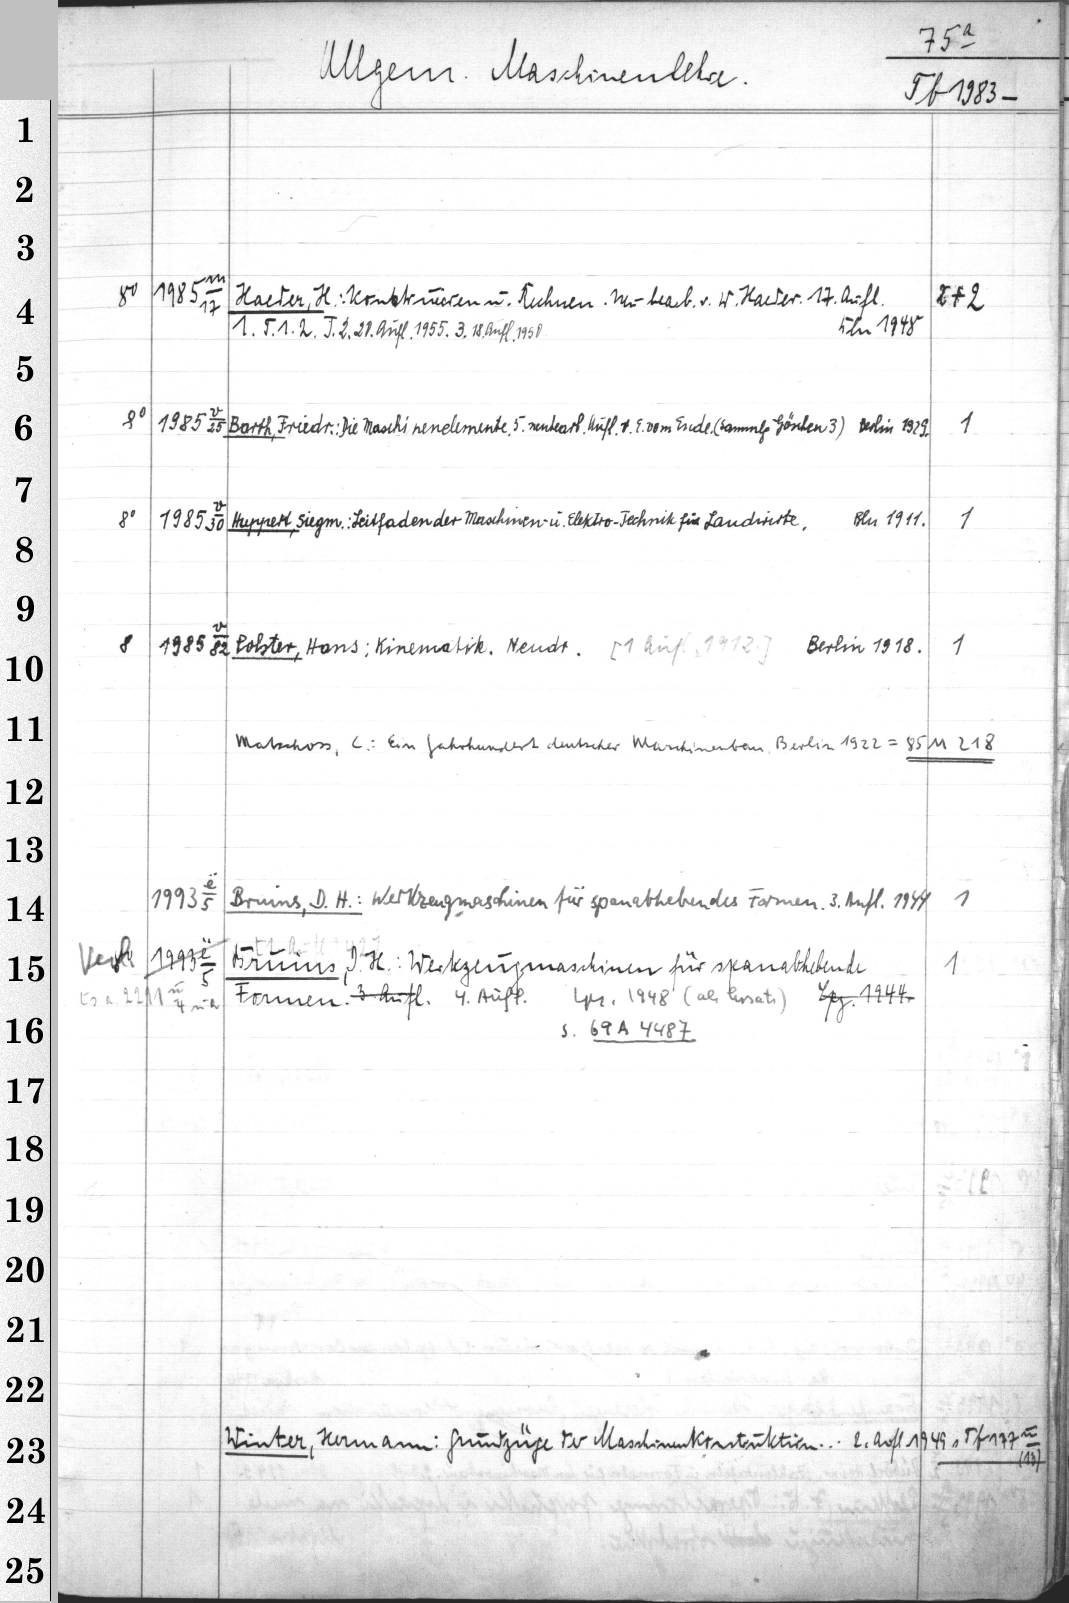 75a
Allgem. Maschinenlehre.
Tf 1983-
1
2
3
8° 1985 m/17 Haeder, H.: Konstruieren u. Rechnen. Neu bearb. v. W. Haeder. 17. Aufl. 2
4
1. T.1.2. T.2.20. Aufl. 1955. 3. 18. Aufl. 1950 Bln 1948
5
8° 1985 v/25 Barth, Friedr.: Die Maschinenelemente. 5. neubearb. Aufl. v. E. vom Ende. (Sammlg Göschen 3) Berlin 1929. 1
6
7
8° 1985 v/30 Huppert, Siegm.: Leitfaden der Maschinen- u. Elektro-Technik für Landwirte. Bln 1911. 1
8
9
8 1985 v/82 Polster, Hans; Kinematik. Neudr. [1 Aufl. 1912.] Berlin 1918. 1
10
11
Matschoss, C.: Ein Jahrhundert deutscher Maschinenbau. Berlin 1922 = 85 M 218
12
13
1993 ë/5 Bruins, D. H.: Werkzeugmaschinen für spanabhebendes Formen. 3. Aufl. 1944 1
14
1993 ë/5 Bruins, D. H.: Werkzeugmaschinen für spanabhebende 1
15
Formen. 3 Aufl. 4. Aufl. Lpz. 1948 (als Ersatz) Lpz. 1944.
16
s. 69 A 4487
17
18
19
20
21
22
Winter, Hermann: Grundzüge der Maschinenkonstruktion... 2. Aufl 1949 s. Tf 177 ü/(13)
23
24
25